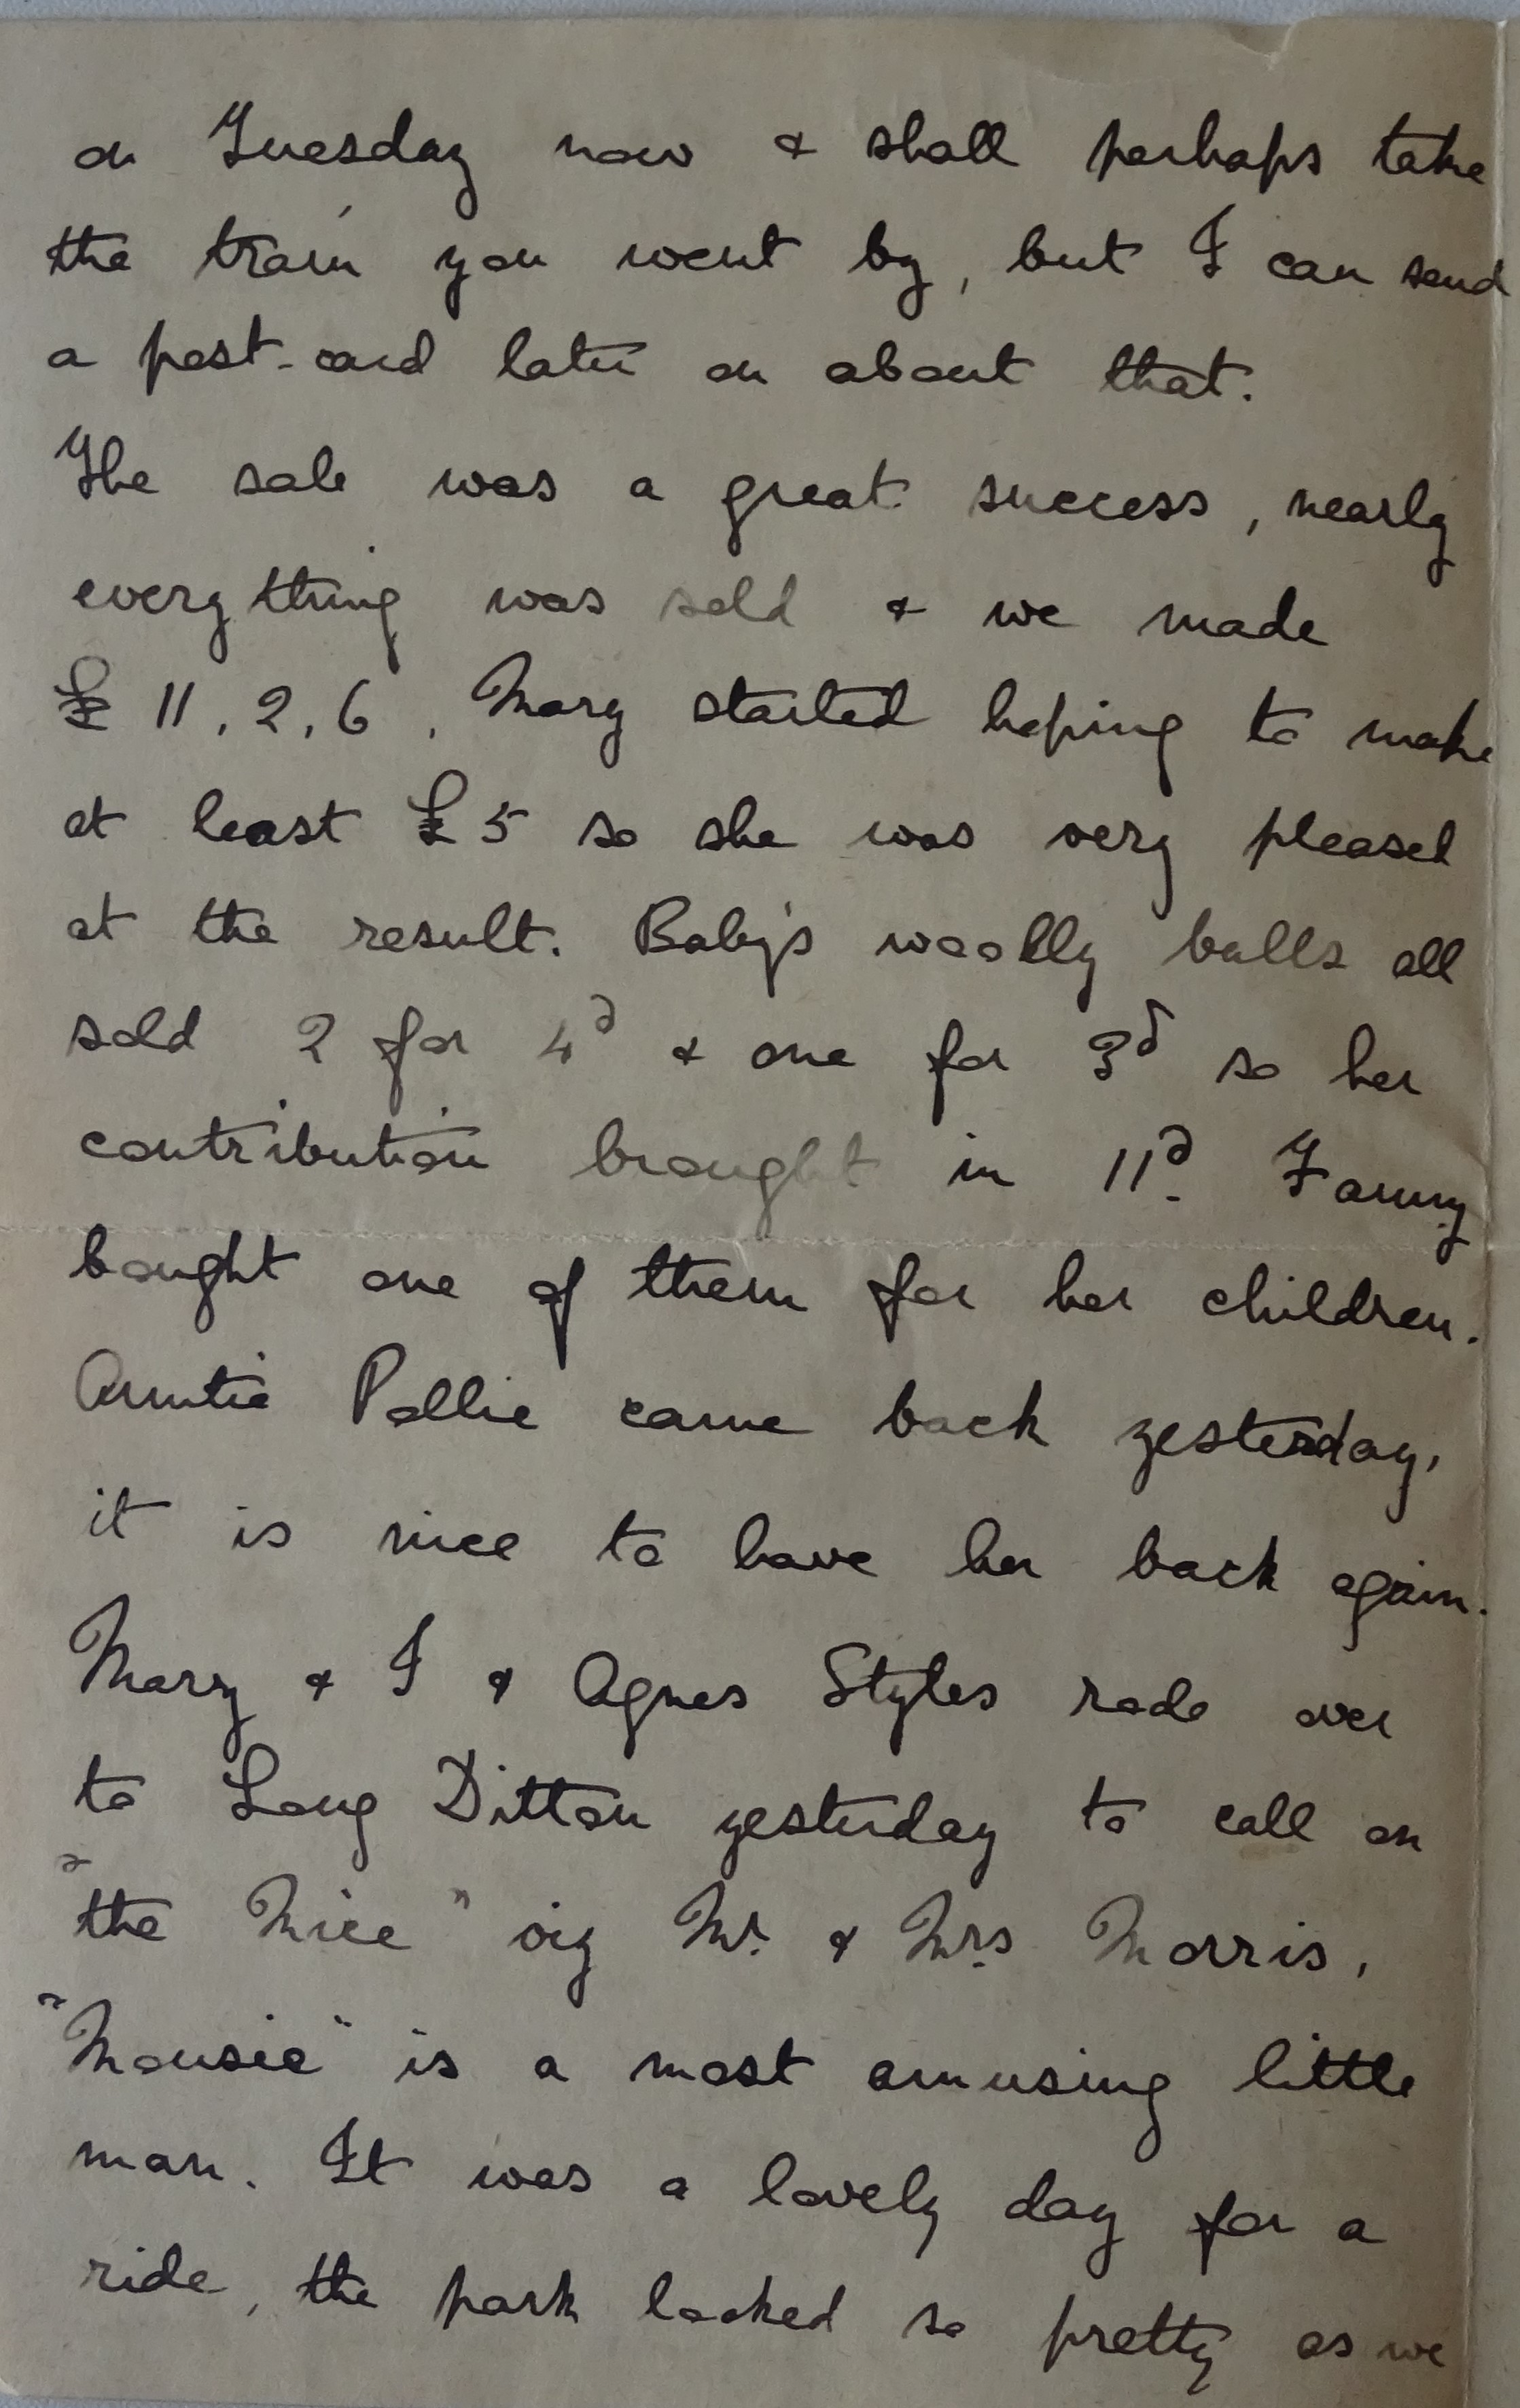 on Tuesday now & shall perhaps take
the train you went by, but I can send
a post-card later on about that.
The sale was a great success, nearly
everything was sold & we made
£ 11, 2, 6. Mary started hoping to make
at least £5 so she was very pleased
at the result. Baby's woolly balls all
sold 2 for 4d & one for 3d so her
contribution brought in 11d. Fanny
bought one of them for her children.
Auntie Pollie came back yesterday,
it is nice to have her back again.
Mary & I & Agnes Styles rode over
to Long Ditton yesterday to call on
"the Mice" viz Mr. & Mrs Morris,
"Mousie" is a most amusing little
man. It was a lovely day for a
ride, the park looked so pretty as we